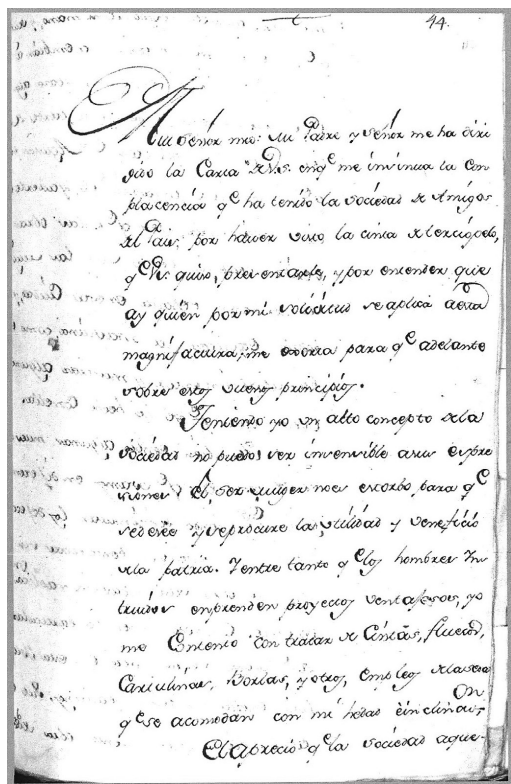 44.
Mui señor mio: Mi Padre y señor me ha diri
gido la Carta de Vs. en q.e me insinua la com
placencia q.e ha tenido la Sociedad de Amigos
del Pais por haver visto la cinta de terciopelo,
q.e Vs. quiso presentarle, y por entender que
ay quien por mi solicitud se aplica a esta
magnifactura, me exorta para q.e adelante
sobre estos buenos principios.
Teniendo yo un alto concepto de la
Sociedad no puedo ser insensible a sus expre
siones. El ser muger no es estorbo para q.e
se desee y se procure la utilidad y veneficio
de la patria. Y entre tanto q.e los hombres Ins
truidos emprenden proyectos ventajosos, yo
me Contento con tratar de Cintas, fluecos,
Cartulinas, Borlas, y otros Empleos de la seda
q.e se acomodan con mi hedad e inclinas.on
El aprecio q.e la Sociedad aque-